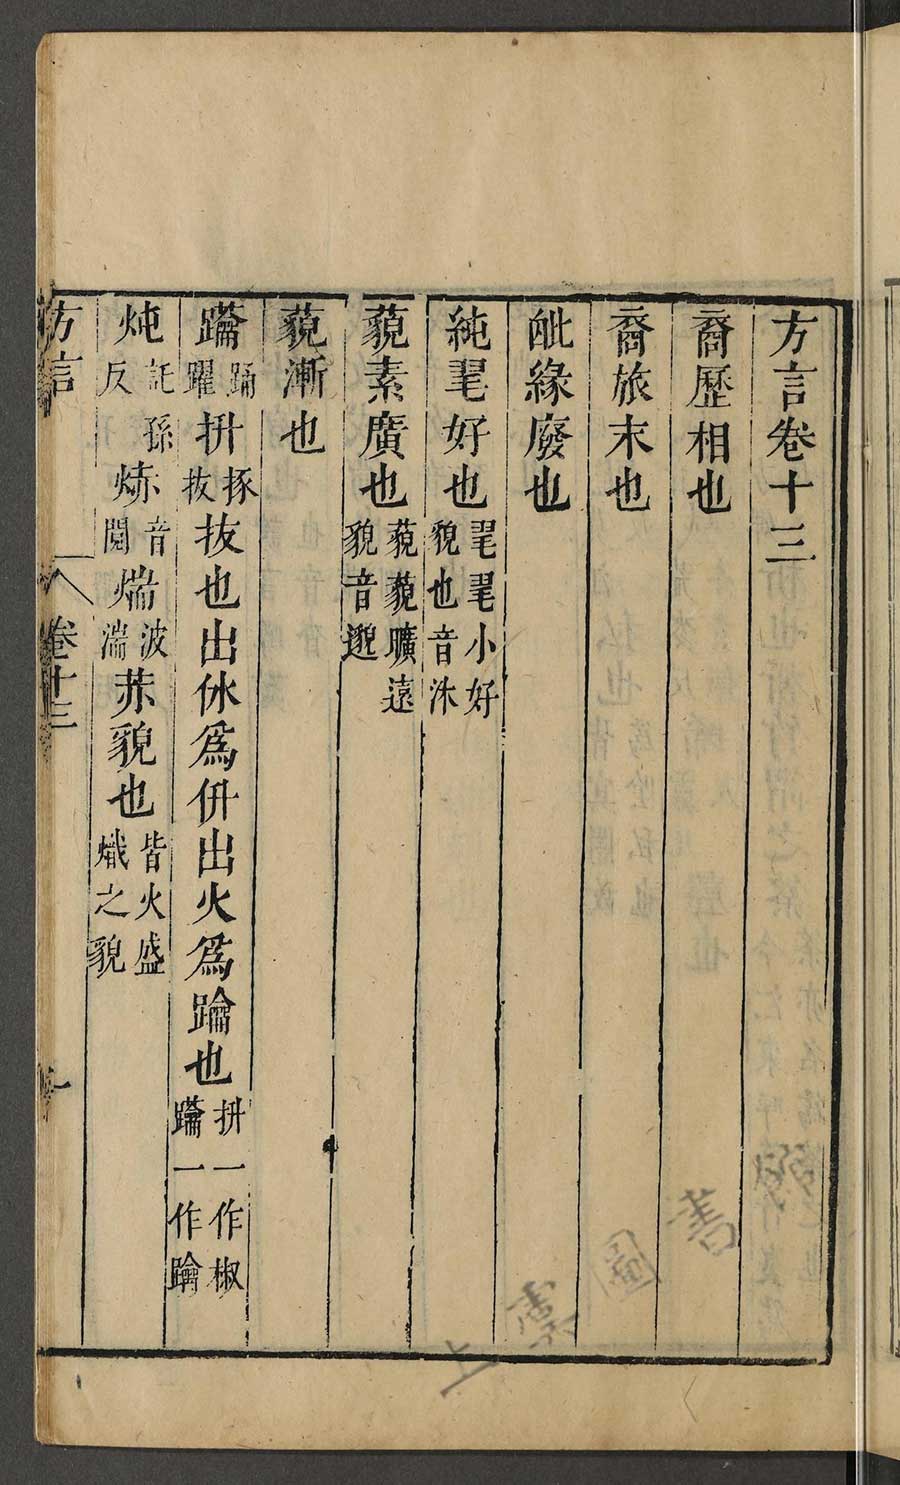 方言卷十三
裔歷相也
裔旅末也
毗緣廢也
純毣好也毣毣小好貌也音沐
藐素廣也藐藐曠遠貌音邈
藐漸也
踊躍抍拔拔也出休爲抍出火爲踚也抍一作椒一作踚
炖託孫反焃音鬩煓波湍赤貌也皆火盛熾之貌
方言 卷十三 一